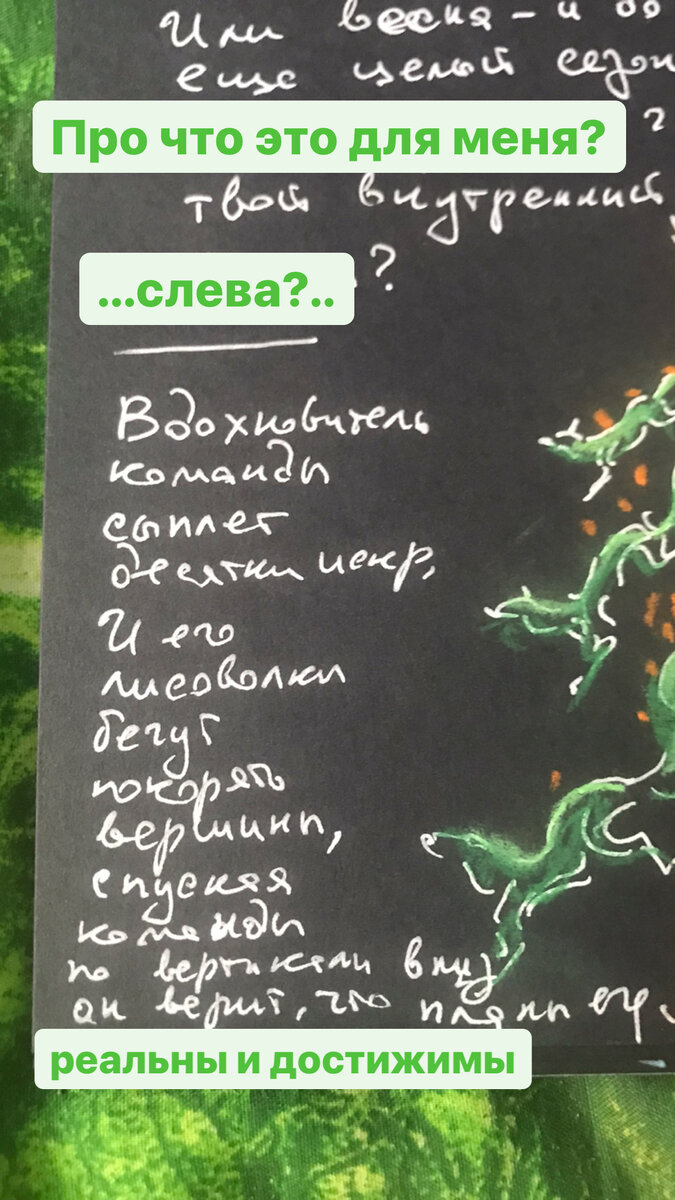 Или весня - и
еще целый сезон
Про что это для меня?
?
твой внутренний
...слева?..
?
Вдохновитель
команды
сыплет
десятки искр,
И его
лисоволки
бегут
покорять
вершины,
спуская
команды
по вертикали вниз
он верит, что планы
реальны и достижимы